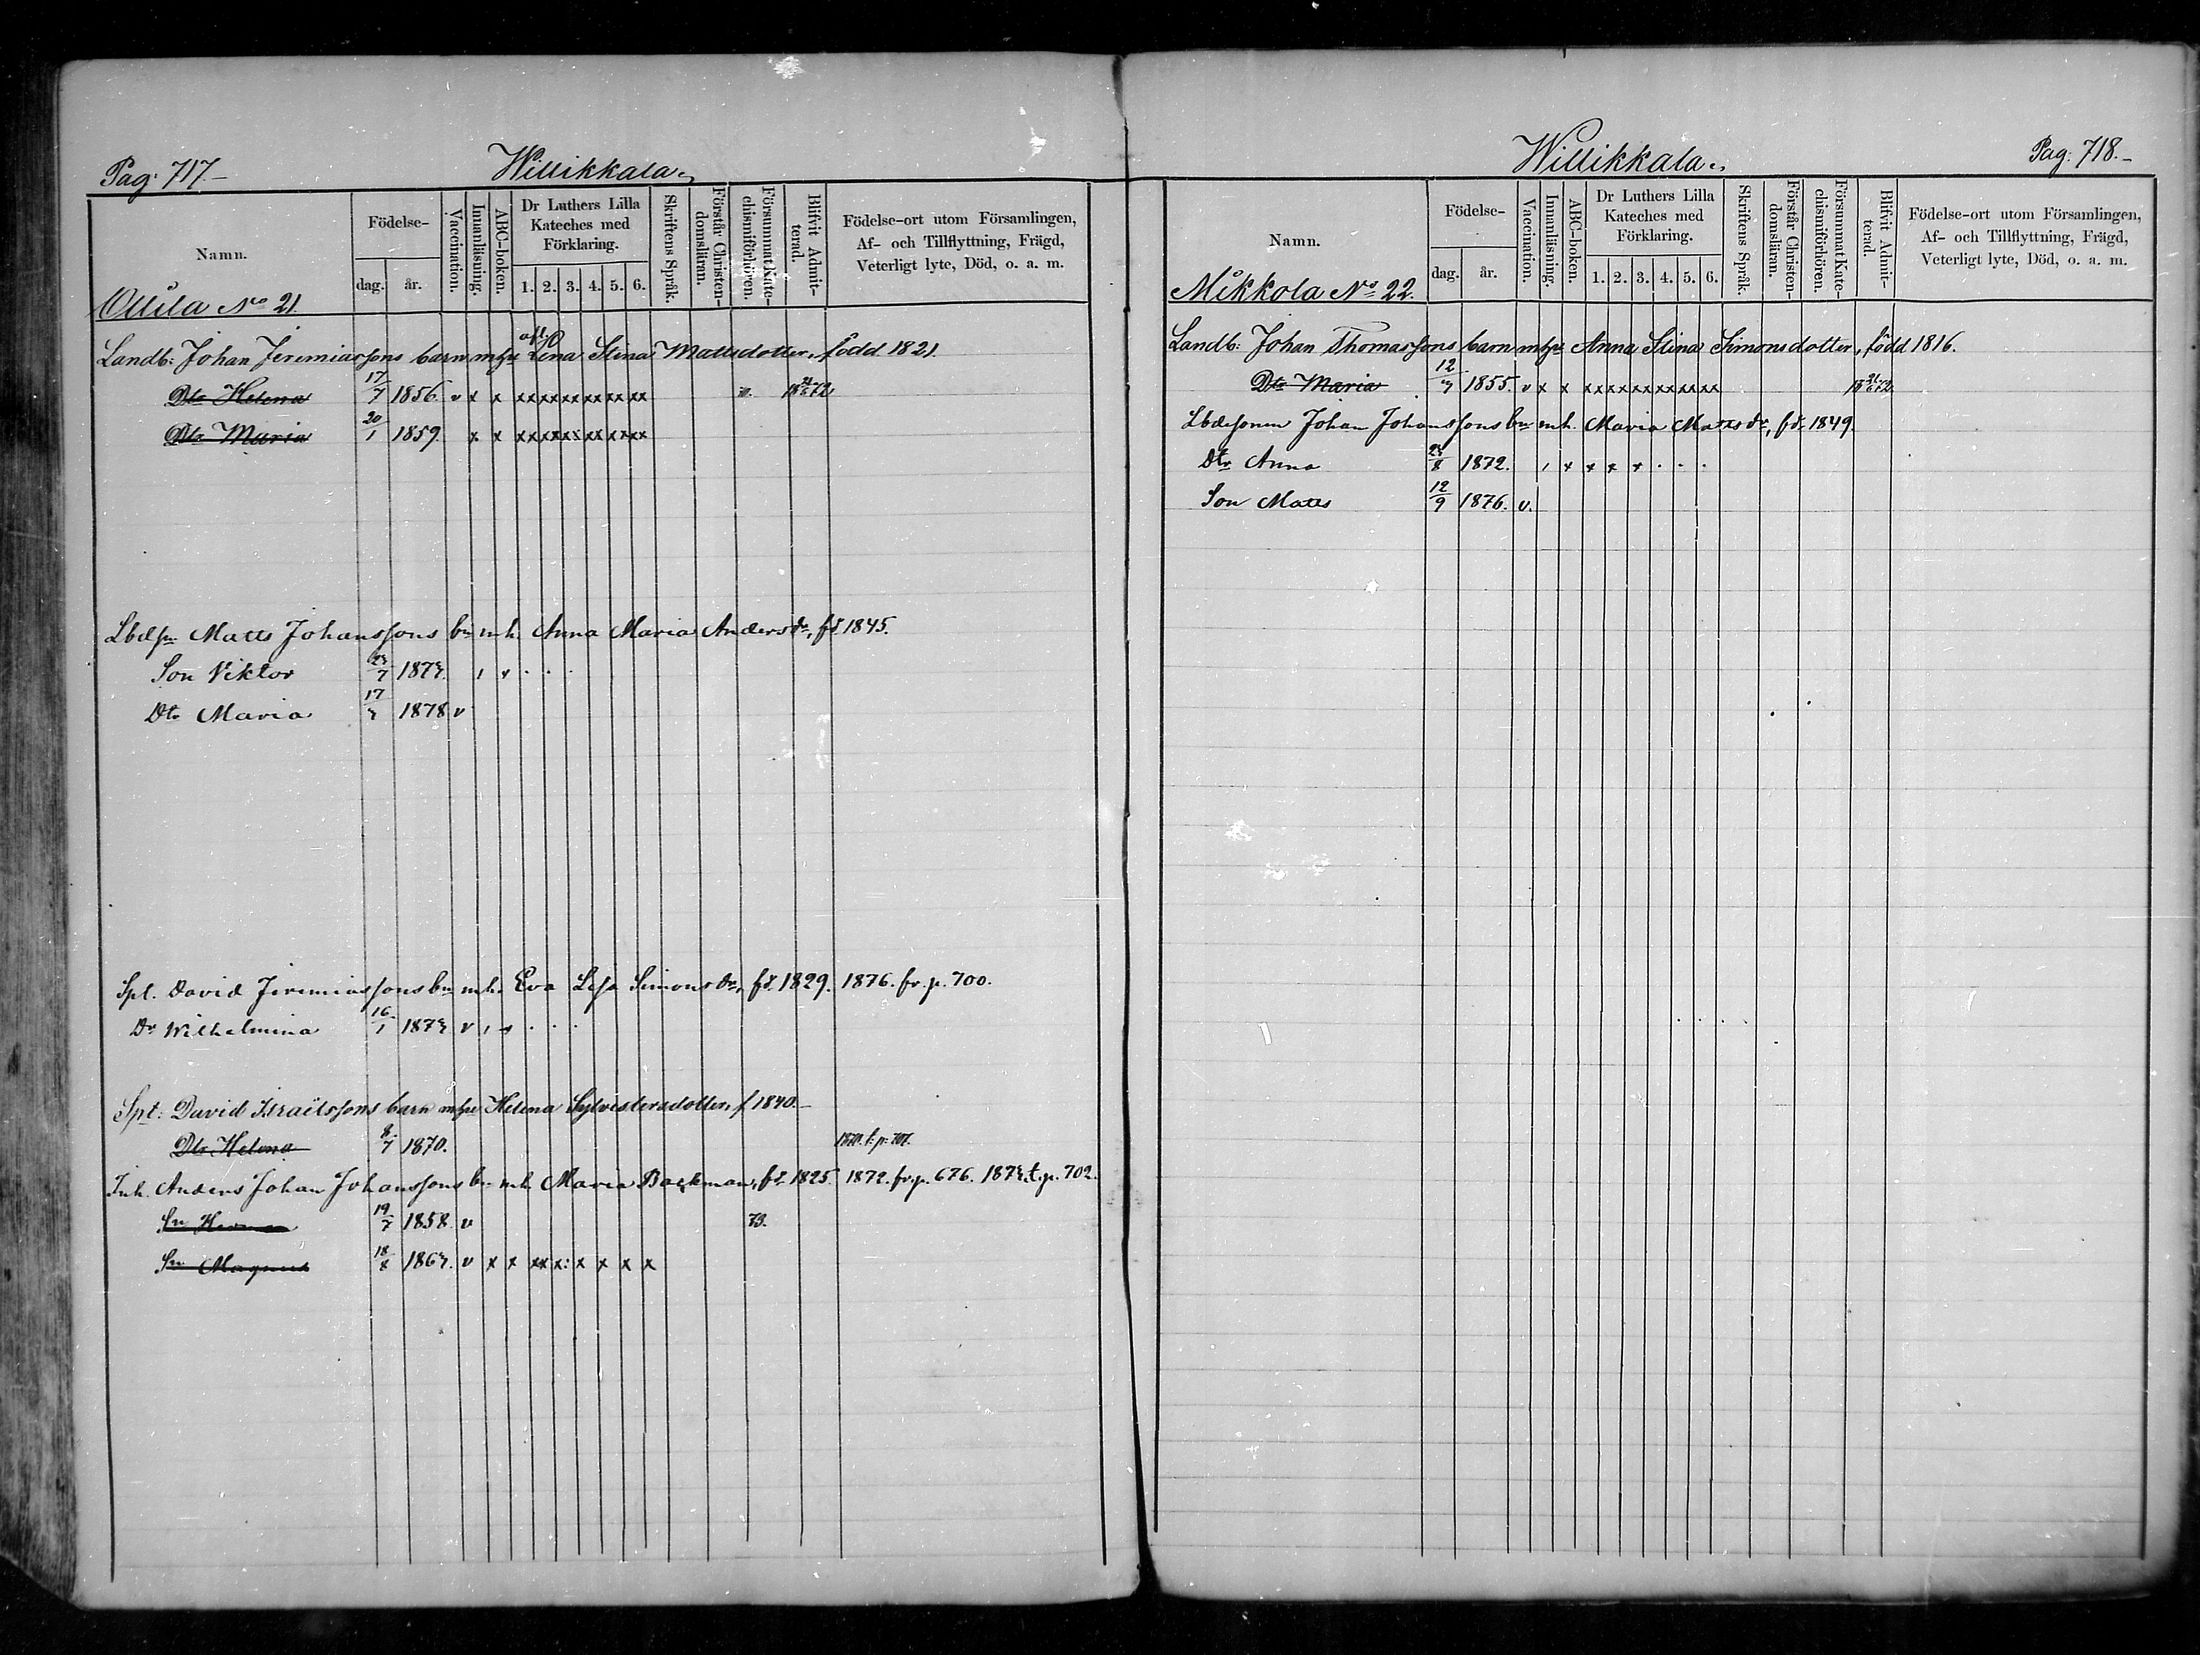 Pag: 717.-
Willikkala.
Namn.
Födelse-
dag.
år.
Vaccination.
Innanläsning.
ABC-boken.
Dr Luthers Lilla Kateches med Förklaring.
1. 2. 3. 4. 5. 6.
Skriftens Språk.
Förstår Christen-domsläran.
Försummat Kate-chismiförhören.
Blifvit Admit-terad.
Födelse-ort utom Församlingen,
Af- och Tillflyttning, Frägd,
Veterligt lyte, Död, o. a. m.
Ollila No 21.
Landb: Johan Jeremiassons barn m hu Lena Stina Mattsdotter, född 1821.
Dtr Helena 17/7 1856. v x x xx xx xx xx xx xx
Dtr Maria 20/1 1859. x x xx xx xx xx xx xx
Lbdsn Matts Johanssons bn m.h. Anna Maria Andersdr, fd. 1845.
Son Viktor 23/7 1873.
Dtr Maria 17/3 1878 v
Spt. David Jeremiassons bn m.h. Eva Lisa Simonsdr, fd. 1829. 1876. fr. p. 700.
Dr Wilhelmina 16/1 1873 v
Spt: David Israëlssons barn m hu Helena Sylvestersdotter, f 1840.-
Dtr Helena 8/7 1870. 1870. t. p. 707.
Inh. Anders Johan Johanssons bn m.h. Maria Backman, fd. 1825. 1872. fr. p. 676. 1873. t. p. 702.
Sn Herman 19/7 1858. v 73.
Sn Magnus 18/8 1863. v x x xx x: x x x x
Willikkala.
Pag: 718.-
Namn.
Födelse-
dag.
år.
Vaccination.
Innanläsning.
ABC-boken.
Dr Luthers Lilla Kateches med Förklaring.
1. 2. 3. 4. 5. 6.
Skriftens Språk.
Förstår Christen-domsläran.
Försummat Kate-chismiförhören.
Blifvit Admit-terad.
Födelse-ort utom Församlingen,
Af- och Tillflyttning, Frägd,
Veterligt lyte, Död, o. a. m.
Mikkola No 22.
Landb: Johan Thomassons barn m hu Anna Stina Simonsdotter, född 1816.
Dtr Maria 12/7 1855. v x x xx xx xx xx xx xx
Lbdesonen Johan Johanssons bn m.h. Maria Mattsdr, fd. 1849.
Dtr Anna 23/8 1872.
Son Matts 12/9 1876. v.